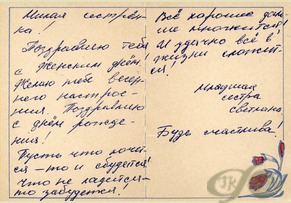 Милая сестрён-
ка!
Поздравляю тебя
с Женским днём!
Желаю тебе весен-
него настрое-
ния. Поздравляю
с днём рожде-
ния!
Пусть что хочет-
ся – то и сбудется!
Что не ладится –
то забудется!
Всё хорошее
множится!
И удачно всё в
жизни сложит-
ся!
Младшая
сестра
Светлана.
Будь счастлива!